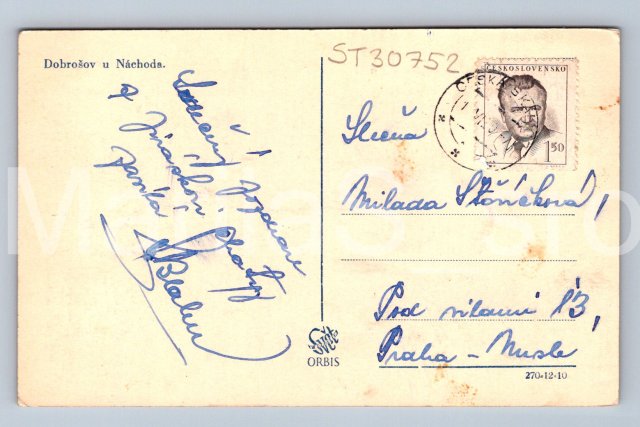 Dobrošov u Náchoda.
ST30752
ČESKOSLOVENSKO
ČESKÁ SKALICE
1.50
Srdečný pozdrav
z Jiráskovi chaty
Slečna
Milada
Pod vilami 13,
Praha - Nusle
Svět
ORBIS
270-12-10